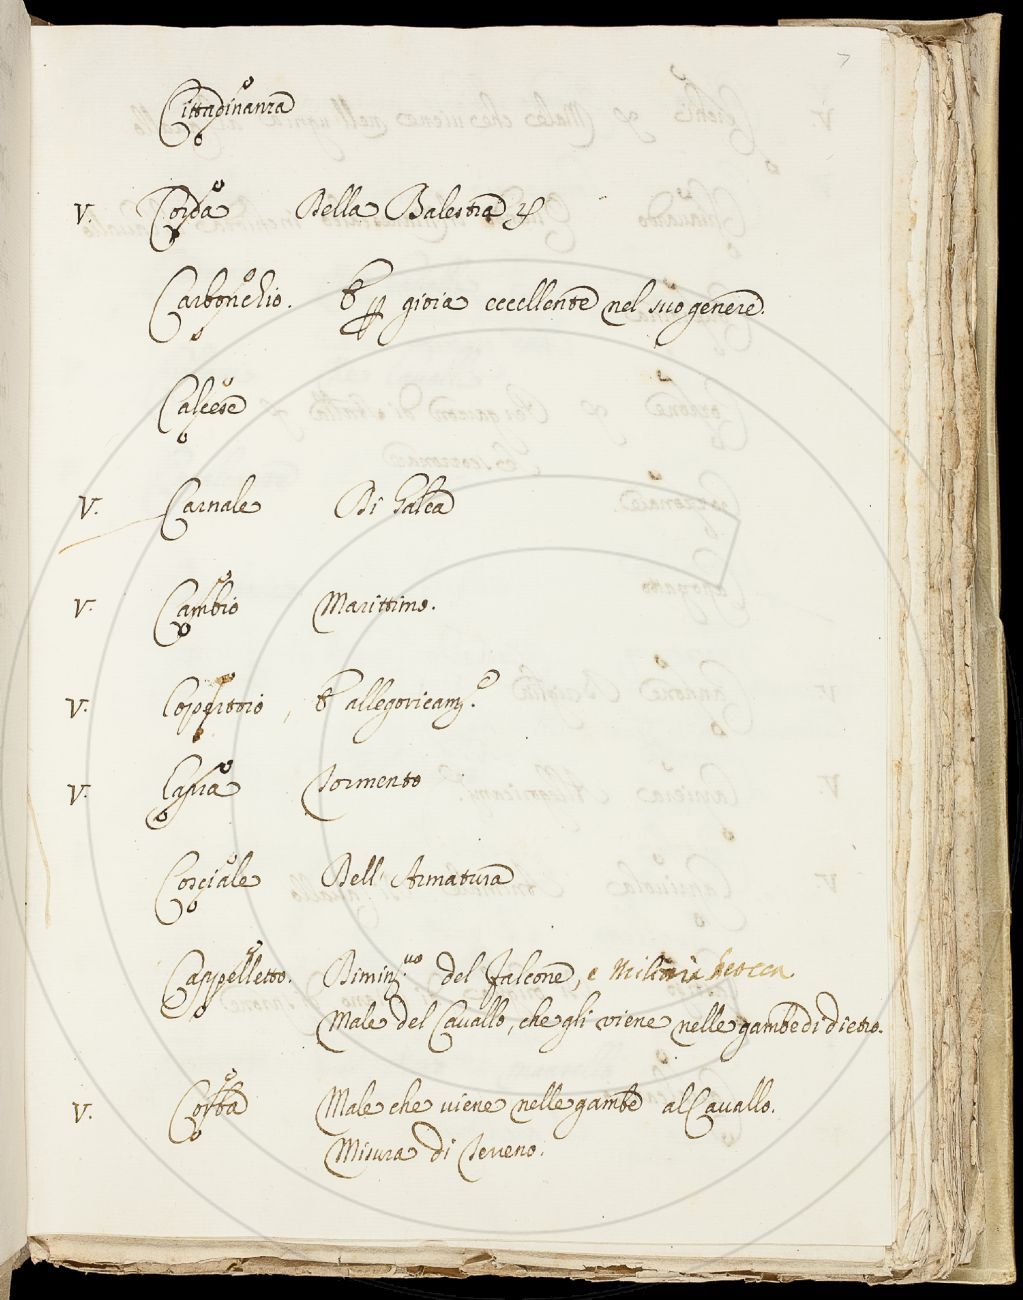 7
Cittadinanza
V. Corda Della Balestra
Carbonchio. gioia eccellente nel suo genere.
Calcese
V. Carnale Di Galea
V. Cambio Marittimo.
V. allegoricam.
V. Tormento
Cosciale Dell' Armatura
Cappelletto. Dimin.uo del falcone, e
Male del Cavallo, che gli viene nelle gambe di dietro.
V. Corba Male che viene nelle gambe al Cavallo.
Misura di Terreno.